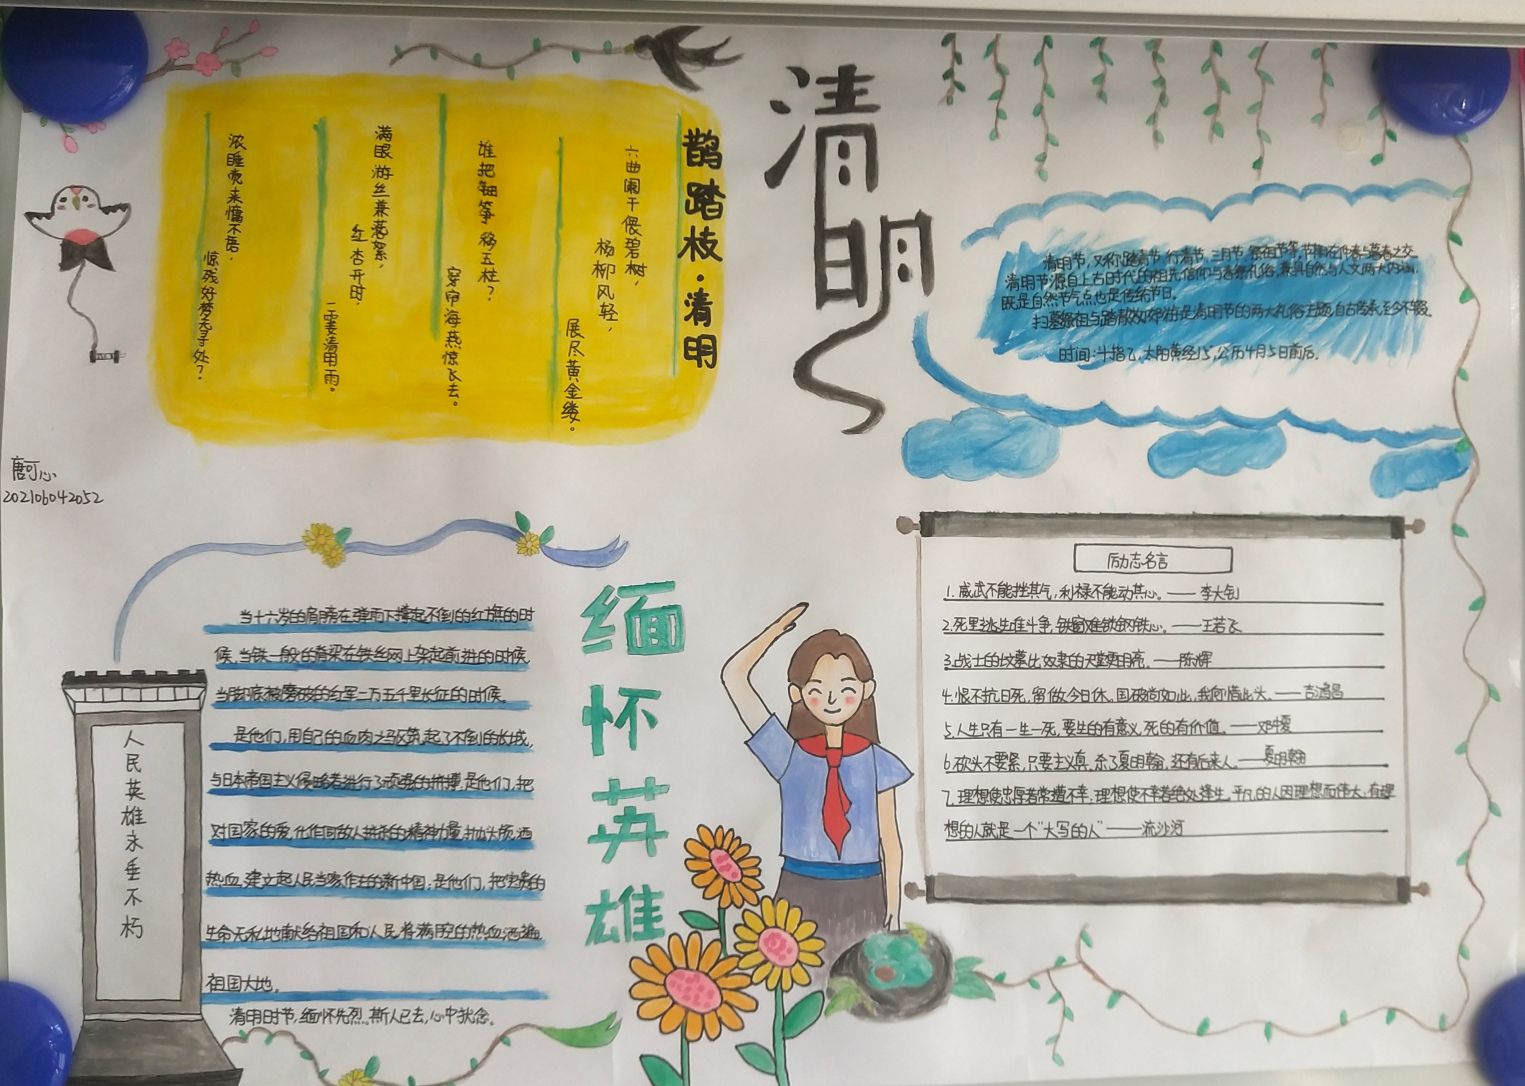 清明
鹊踏枝·清明
六曲阑干偎碧树，
杨柳风轻，
展尽黄金缕。
谁把钿筝移五柱？
穿帘海燕惊飞去。
满眼游丝兼落絮，
红杏开时，
一霎清明雨。
浓睡觉来慵不语，
惊残好梦无寻处？
唐可心
202106042052
清明节，又称踏青节、行清节、三月节、祭祖节等，节期在仲春与暮春之交。
清明节源自上古时代的祖先信仰与春祭礼俗，兼具自然与人文两大内涵，
既是自然节气点也是传统节日。
扫墓祭祖与踏青郊游是清明节的两大礼俗主题，自古传承，至今不辍。
时间：斗指乙，太阳黄经15°，公历4月5日前后。
缅怀英雄
当十六岁的肩膀在弹雨下撑起不倒的红旗的时
候，当铁一般的脊梁在铁丝网上架起前进的时候，
当脚底被磨破的红军二万五千里长征的时候。
是他们，用自己的血肉之躯筑起了不倒的长城，
与日本帝国主义侵略者进行了顽强的拼搏，是他们，把
对国家的爱，化作同敌人拼杀的精神力量，抛头颅，洒
热血，建立起人民当家作主的新中国；是他们，把宝贵的
生命无私地献给祖国和人民，将满腔的热血洒遍
祖国大地。
清明时节，缅怀先烈。斯人已去，心中犹念。
人民英雄永垂不朽
励志名言
1.威武不能挫其气，利禄不能动其心。——李大钊
2.死里逃生唯斗争，铁窗难锁钢铁心。——王若飞
3.战士的坟墓比奴隶的天堂更明亮。——陈辉
4.恨不抗日死，留做今日休。国破尚如此，我何惜此头。——吉鸿昌
5.人生只有一生一死，要生的有意义，死的有价值。——邓中夏
6.砍头不要紧，只要主义真。杀了夏明翰，还有后来人。——夏明翰
7.理想使忠厚者常遭不幸，理想使不幸者绝处逢生。平凡的人因理想而伟大，有理
想的人就是一个“大写的人”——流沙河